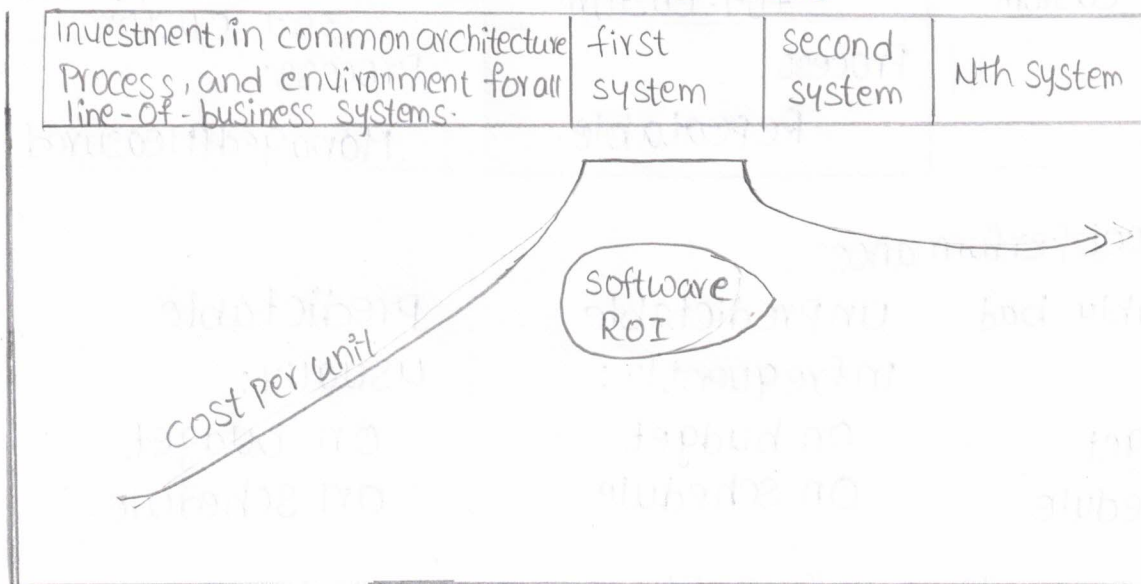 Investment, in common architecture
Process, and environment for all
line-of-business systems.
first
system
second
system
Nth system
cost per unit
software
ROI